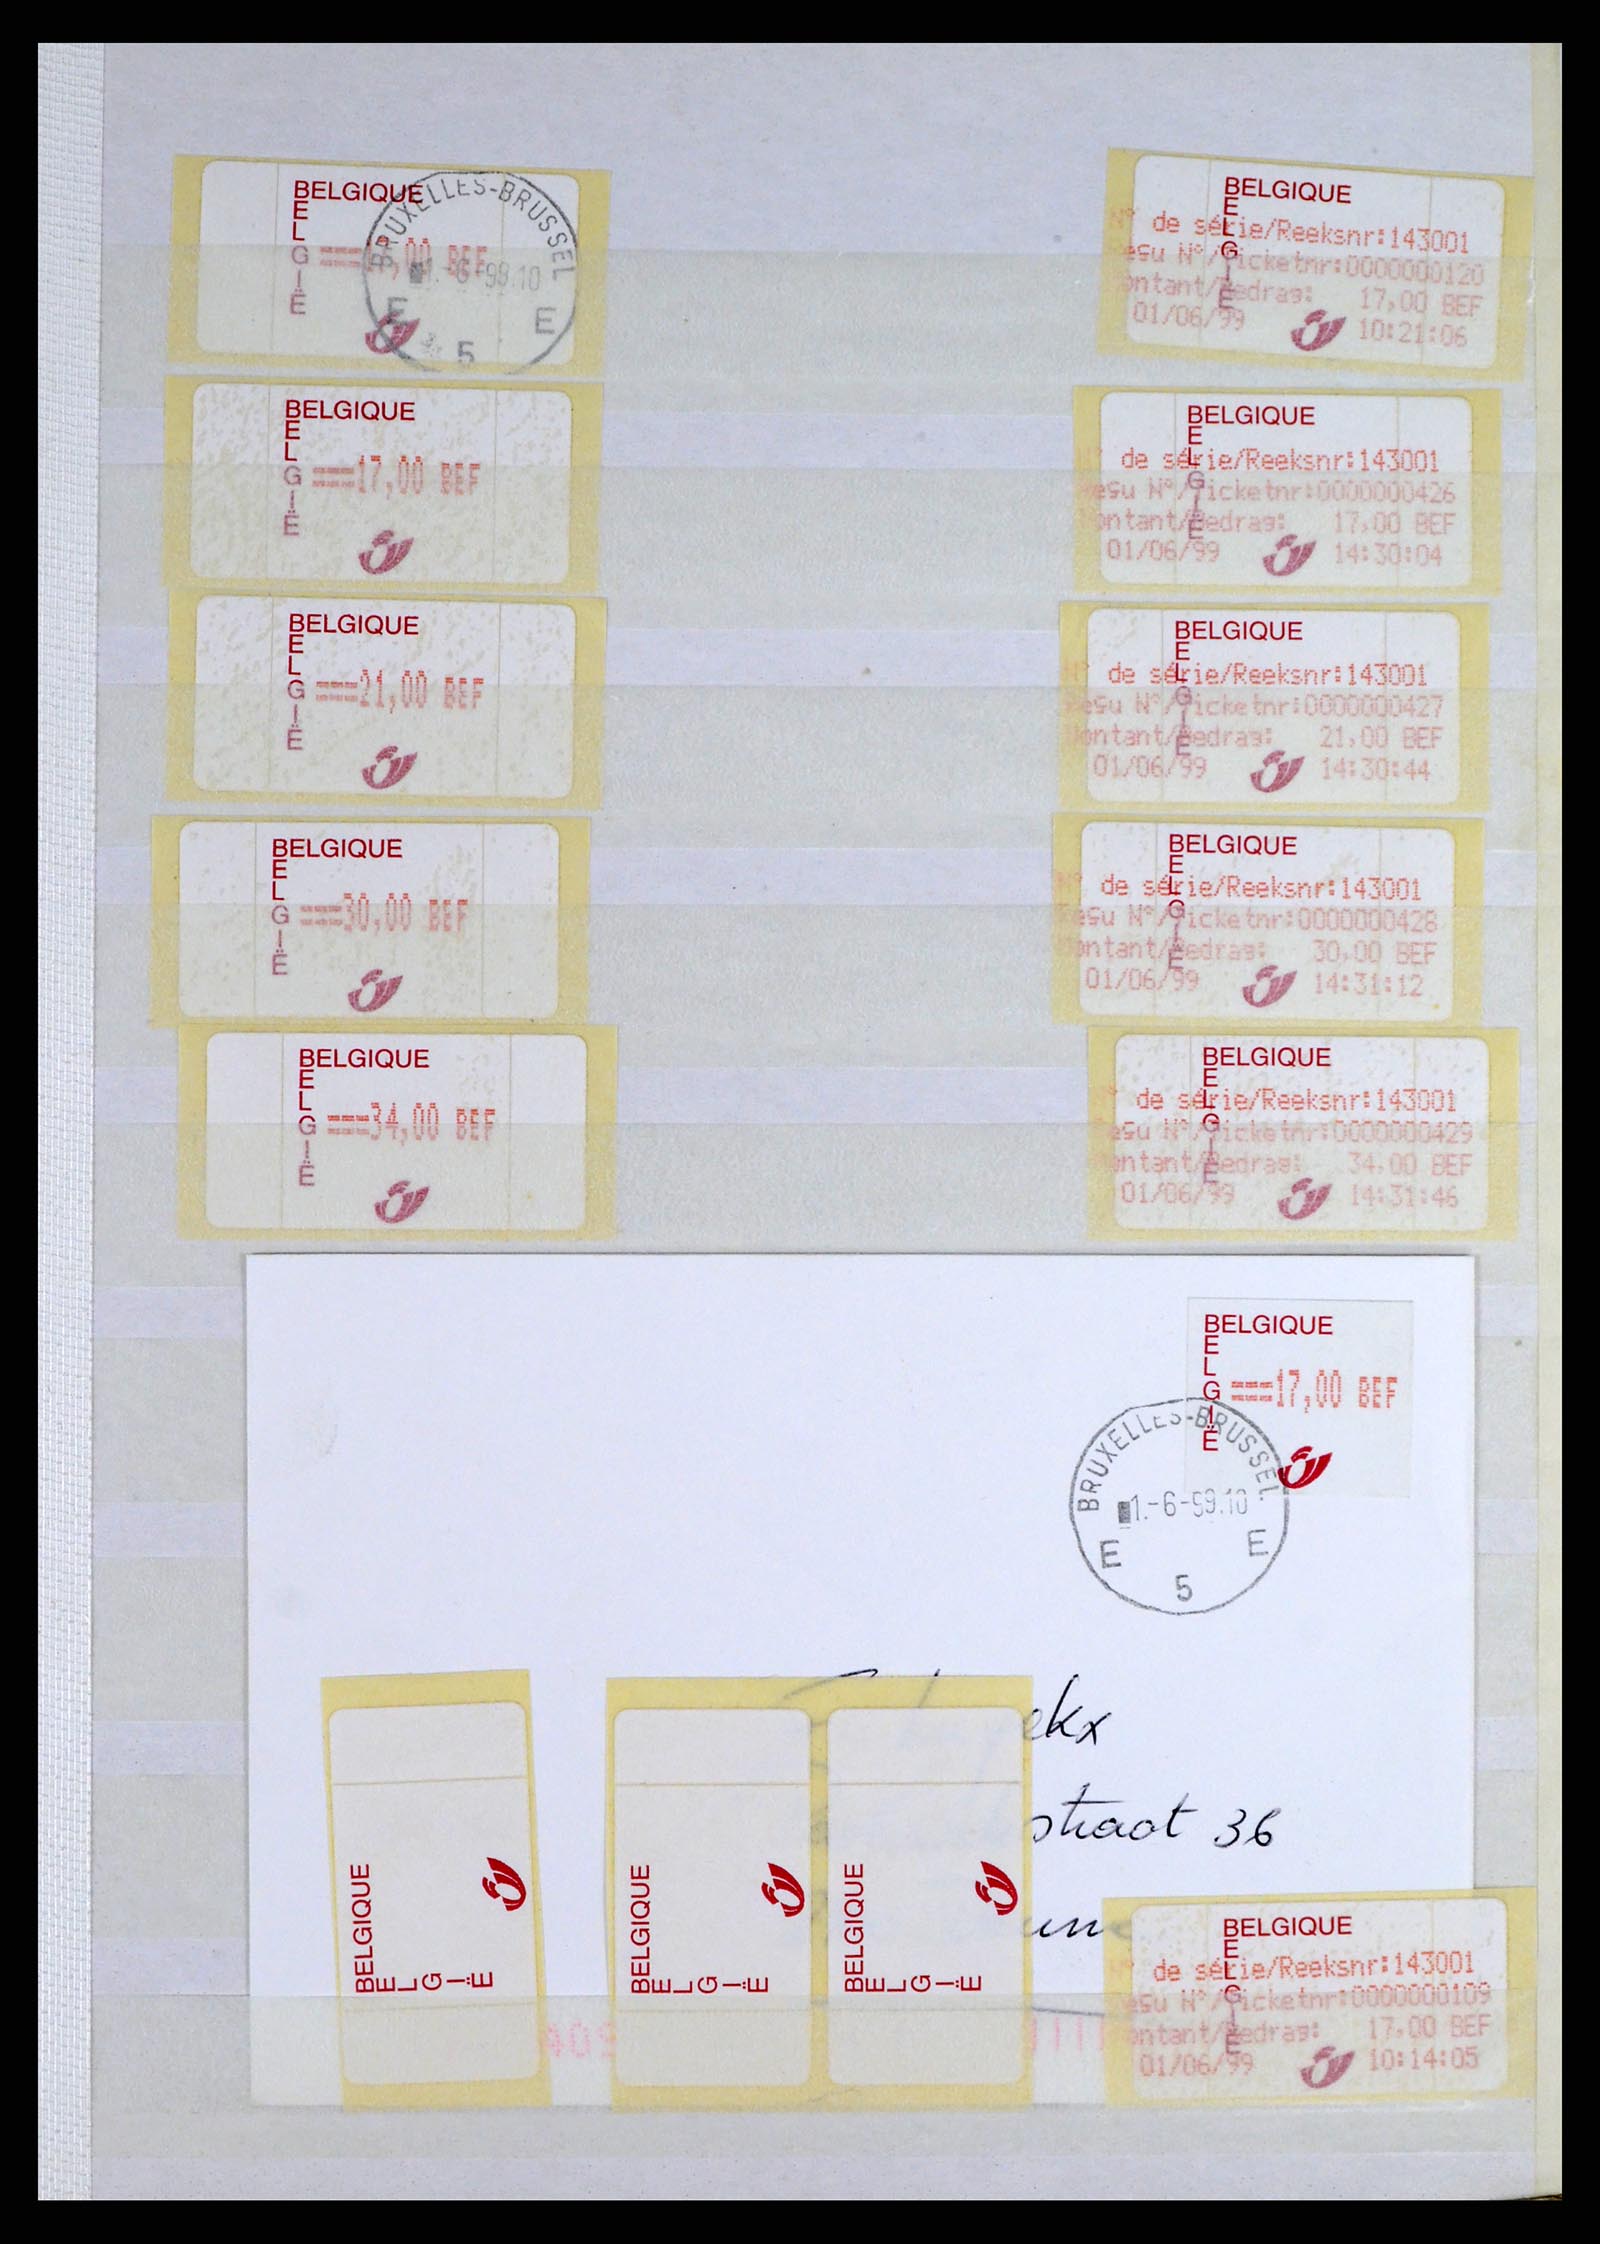 BELGIQUE
BELGIË
BEF
BRUXELLES-BRUSSEL
E E
5
BELGIQUE
BELGIË
de série/Reeksnr:143001
N°/Ticketnr:0000000120
17,00 BEF
01/06/99 10:21:06
BELGIQUE
BELGIË
===17,00 BEF
BELGIQUE
BELGIË
de série/Reeksnr:143001
N°/Ticketnr:0000000426
17,00 BEF
01/06/99 14:30:04
BELGIQUE
BELGIË
===21,00 BEF
BELGIQUE
BELGIË
N° de série/Reeksnr:143001
Reçu N°/Ticketnr:0000000427
Montant/Bedrag: 21,00 BEF
01/06/99 14:30:44
BELGIQUE
BELGIË
===30,00 BEF
BELGIQUE
BELGIË
N° de série/Reeksnr:143001
Reçu N°/Ticketnr:0000000428
30,00 BEF
01/06/99 14:31:12
BELGIQUE
BELGIË
===34,00 BEF
BELGIQUE
BELGIË
N° de série/Reeksnr:143001
N°/Ticketnr:0000000429
34,00 BEF
01/06/99 14:31:46
BELGIQUE
BELGIË
===17,00 BEF
BRUXELLES-BRUSSEL
1.-6-99.10
E E
5
36
BELGIQUE
BELGIË
BELGIQUE
BELGIË
BELGIQUE
BELGIË
BELGIQUE
BELGIË
de série/Reeksnr:143001
N°/Ticketnr:0000000109
17,00 BEF
01/06/99 10:14:05